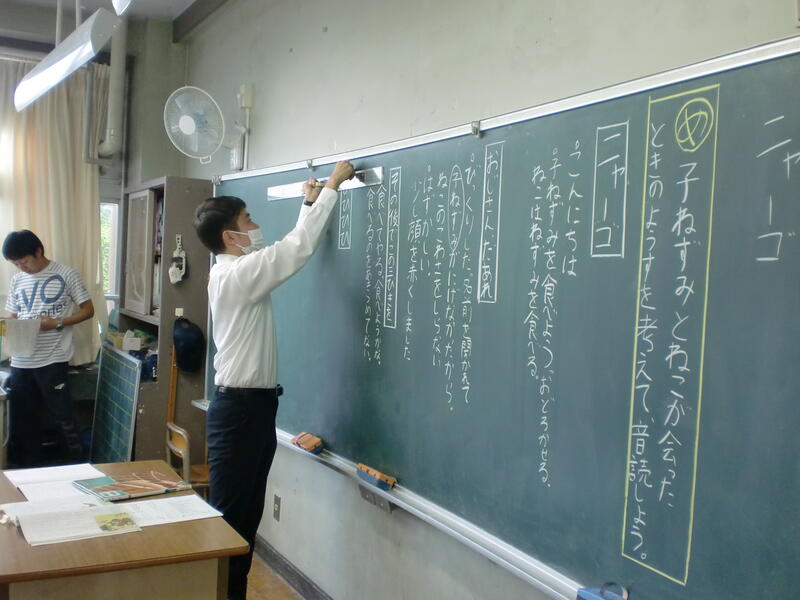 ニャーゴ
め 子ねずみとねこが会った
ときのようすを考えて、音読しよう。
ニャーゴ
。こんにちは
。子ねずみを食べよう、おどろかせる。
ねこはねずみを食べる。
おじさんだあれ
。びっくりした、名前を聞かれて
子ねずみがにげなかったから。
ねこのこわさをしらない
。はずかしい
少し顔を赤くしました
その後で この三びきを
食べてやる。食べようかな。
ひひひ
VO